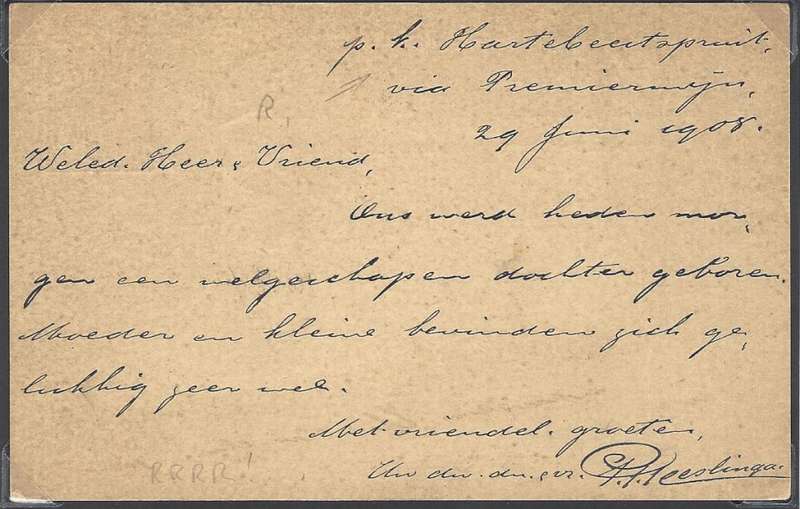 p. k. Hartebeestspruit,
via Premiermijn,
29 Juni 1908.
R,
Weled. Heer & Vriend,
Ons werd heden mor,
gen een welgeschapen dochter geboren.
Moeder en kleine bevinden zich ge,
lukkig zeer wel.
Met vriendel. groeten,
Uw dw. dn. & vr.
RRRR!